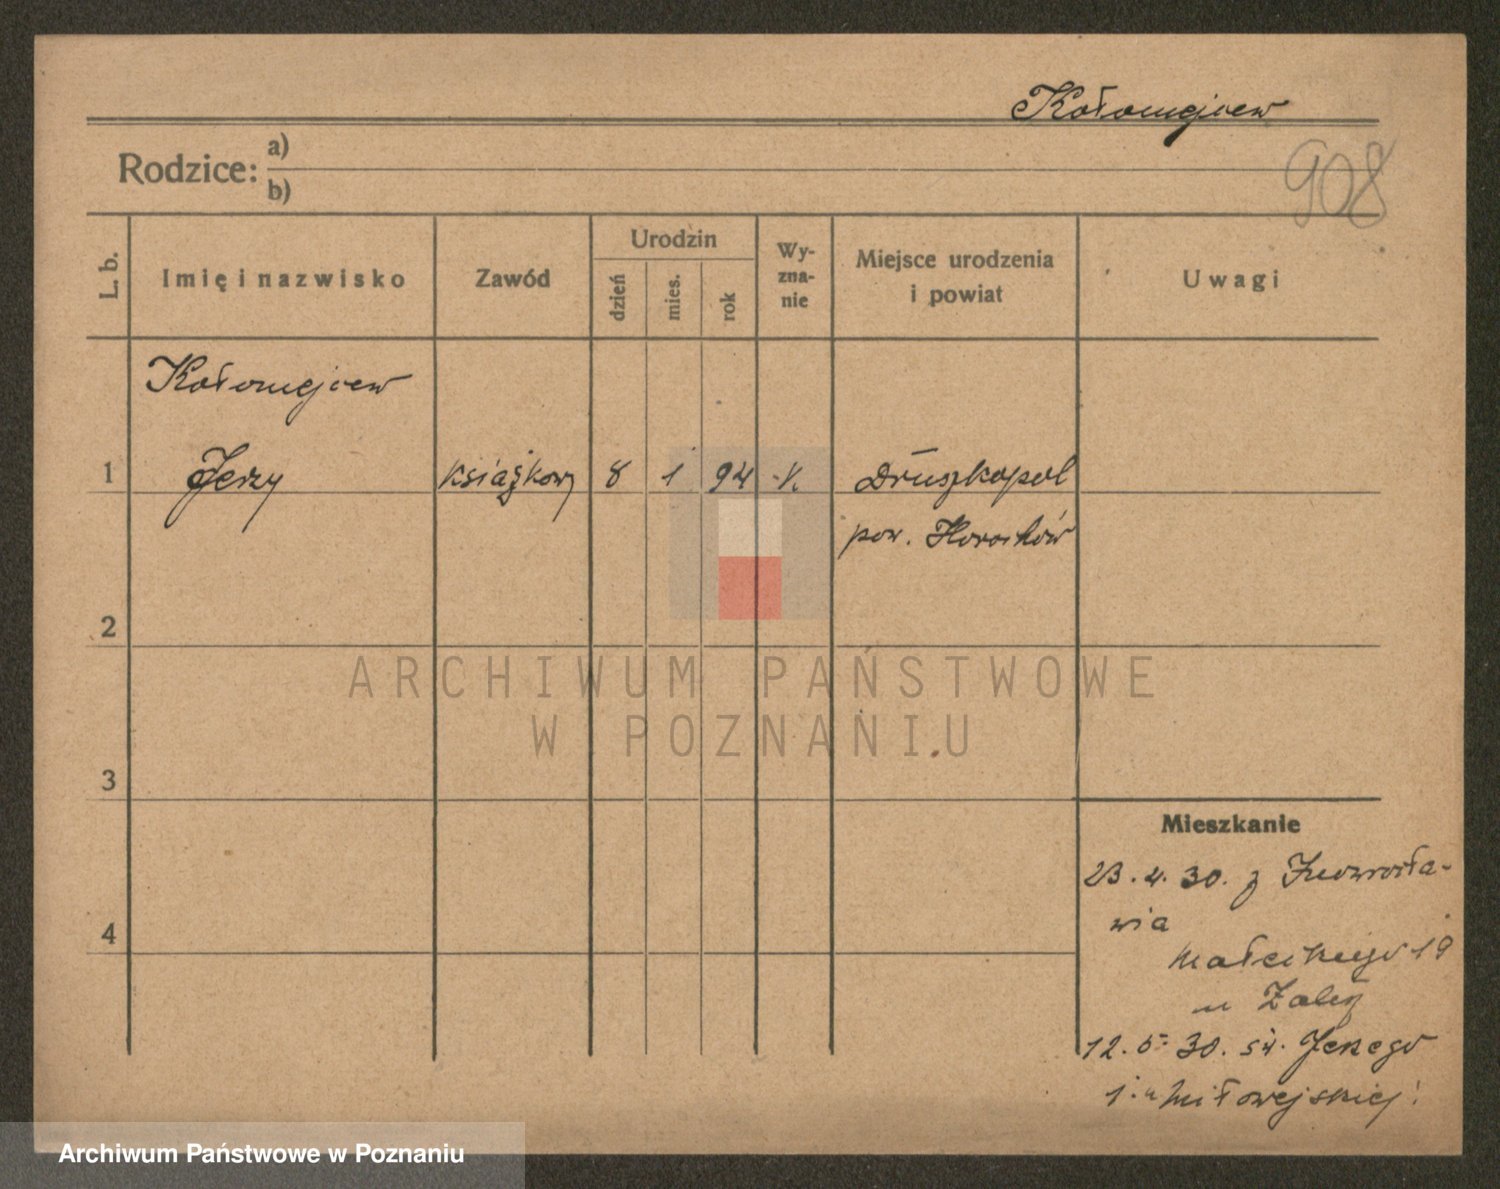 Kołomejcew
908
Rodzice: a)
b)
L. b.
Imię i nazwisko
Zawód
Urodzin
dzień
mies.
rok
Wy-
zna-
nie
Miejsce urodzenia
i powiat
Uwagi
Kołomejcew
1 Jerzy książkowy 8 1 94 K. Druszkopol
pow. Horochów
2
ARCHIWUM PAŃSTWOWE
W POZNANIU
3
Mieszkanie
23.4.30. z Inowrocła-
wia
4
Małeckiego 19
u
12.5.30. św. Jerzego
1. u Miłowejskiej
Archiwum Państwowe w Poznaniu